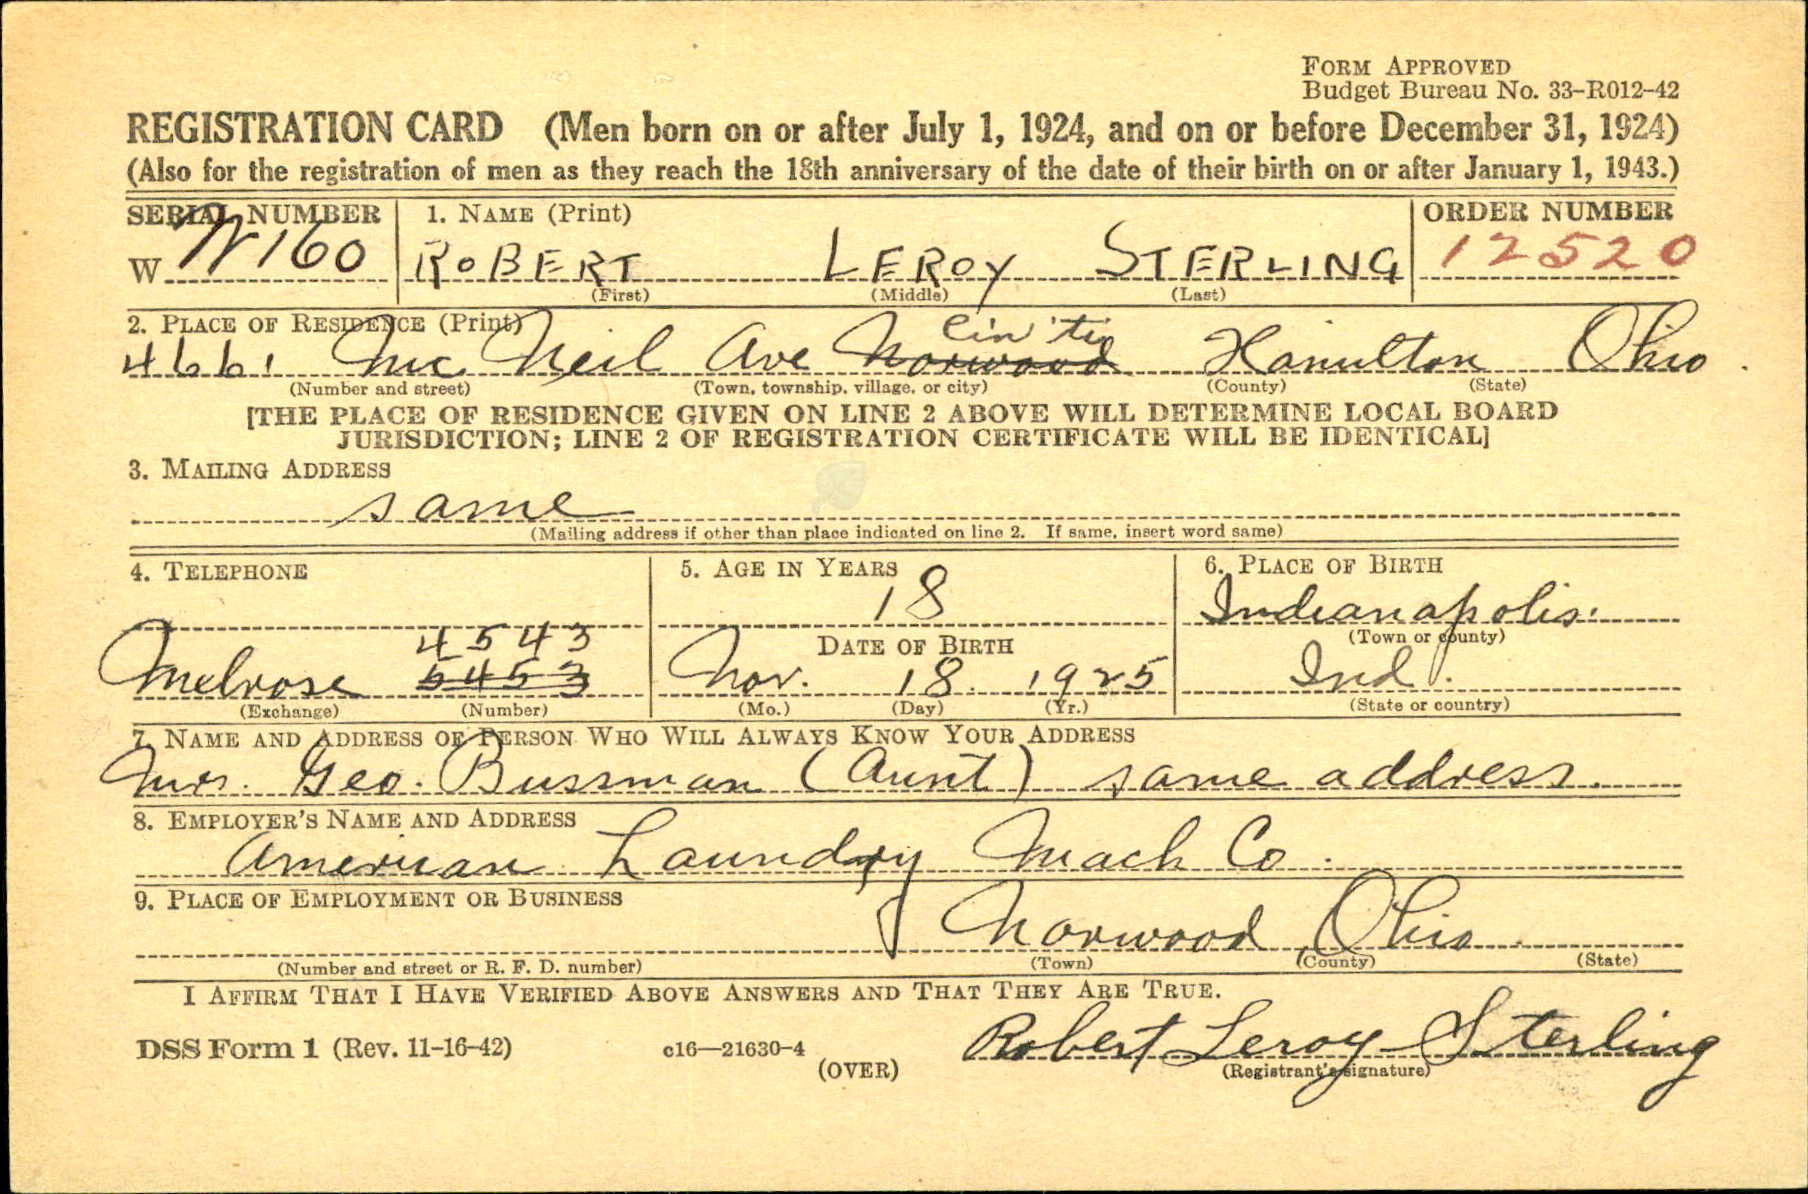 FORM APPROVED
Budget Bureau No. 33-R012-42
REGISTRATION CARD (Men born on or after July 1, 1924, and on or before December 31, 1924)
(Also for the registration of men as they reach the 18th anniversary of the date of their birth on or after January 1, 1943.)
SERIAL NUMBER 1. NAME (Print) ORDER NUMBER
W W160 ROBERT LEROY STERLING 12520
(First) (Middle) (Last)
2. PLACE OF RESIDENCE (Print)
Cin'ti
4661 McNeil Ave Norwood Hamilton Ohio
(Number and street) (Town, township, village, or city) (County) (State)
[THE PLACE OF RESIDENCE GIVEN ON LINE 2 ABOVE WILL DETERMINE LOCAL BOARD
JURISDICTION; LINE 2 OF REGISTRATION CERTIFICATE WILL BE IDENTICAL]
3. MAILING ADDRESS
same
(Mailing address if other than place indicated on line 2. If same, insert word same)
4. TELEPHONE 5. AGE IN YEARS 6. PLACE OF BIRTH
18 Indianapolis.
(Town or county)
4543 DATE OF BIRTH
Melrose 5453 Nov. 18. 1925 Ind.
(Exchange) (Number) (Mo.) (Day) (Yr.) (State or country)
7. NAME AND ADDRESS OF PERSON WHO WILL ALWAYS KNOW YOUR ADDRESS
Mrs. Geo. Bussman (Aunt) same address.
8. EMPLOYER'S NAME AND ADDRESS
American Laundry Mach Co.
9. PLACE OF EMPLOYMENT OR BUSINESS
Norwood, Ohio.
(Number and street or R. F. D. number) (Town) (County) (State)
I AFFIRM THAT I HAVE VERIFIED ABOVE ANSWERS AND THAT THEY ARE TRUE.
DSS Form 1 (Rev. 11-16-42) c16—21630-4 Robert Leroy Sterling
(OVER) (Registrant's signature)